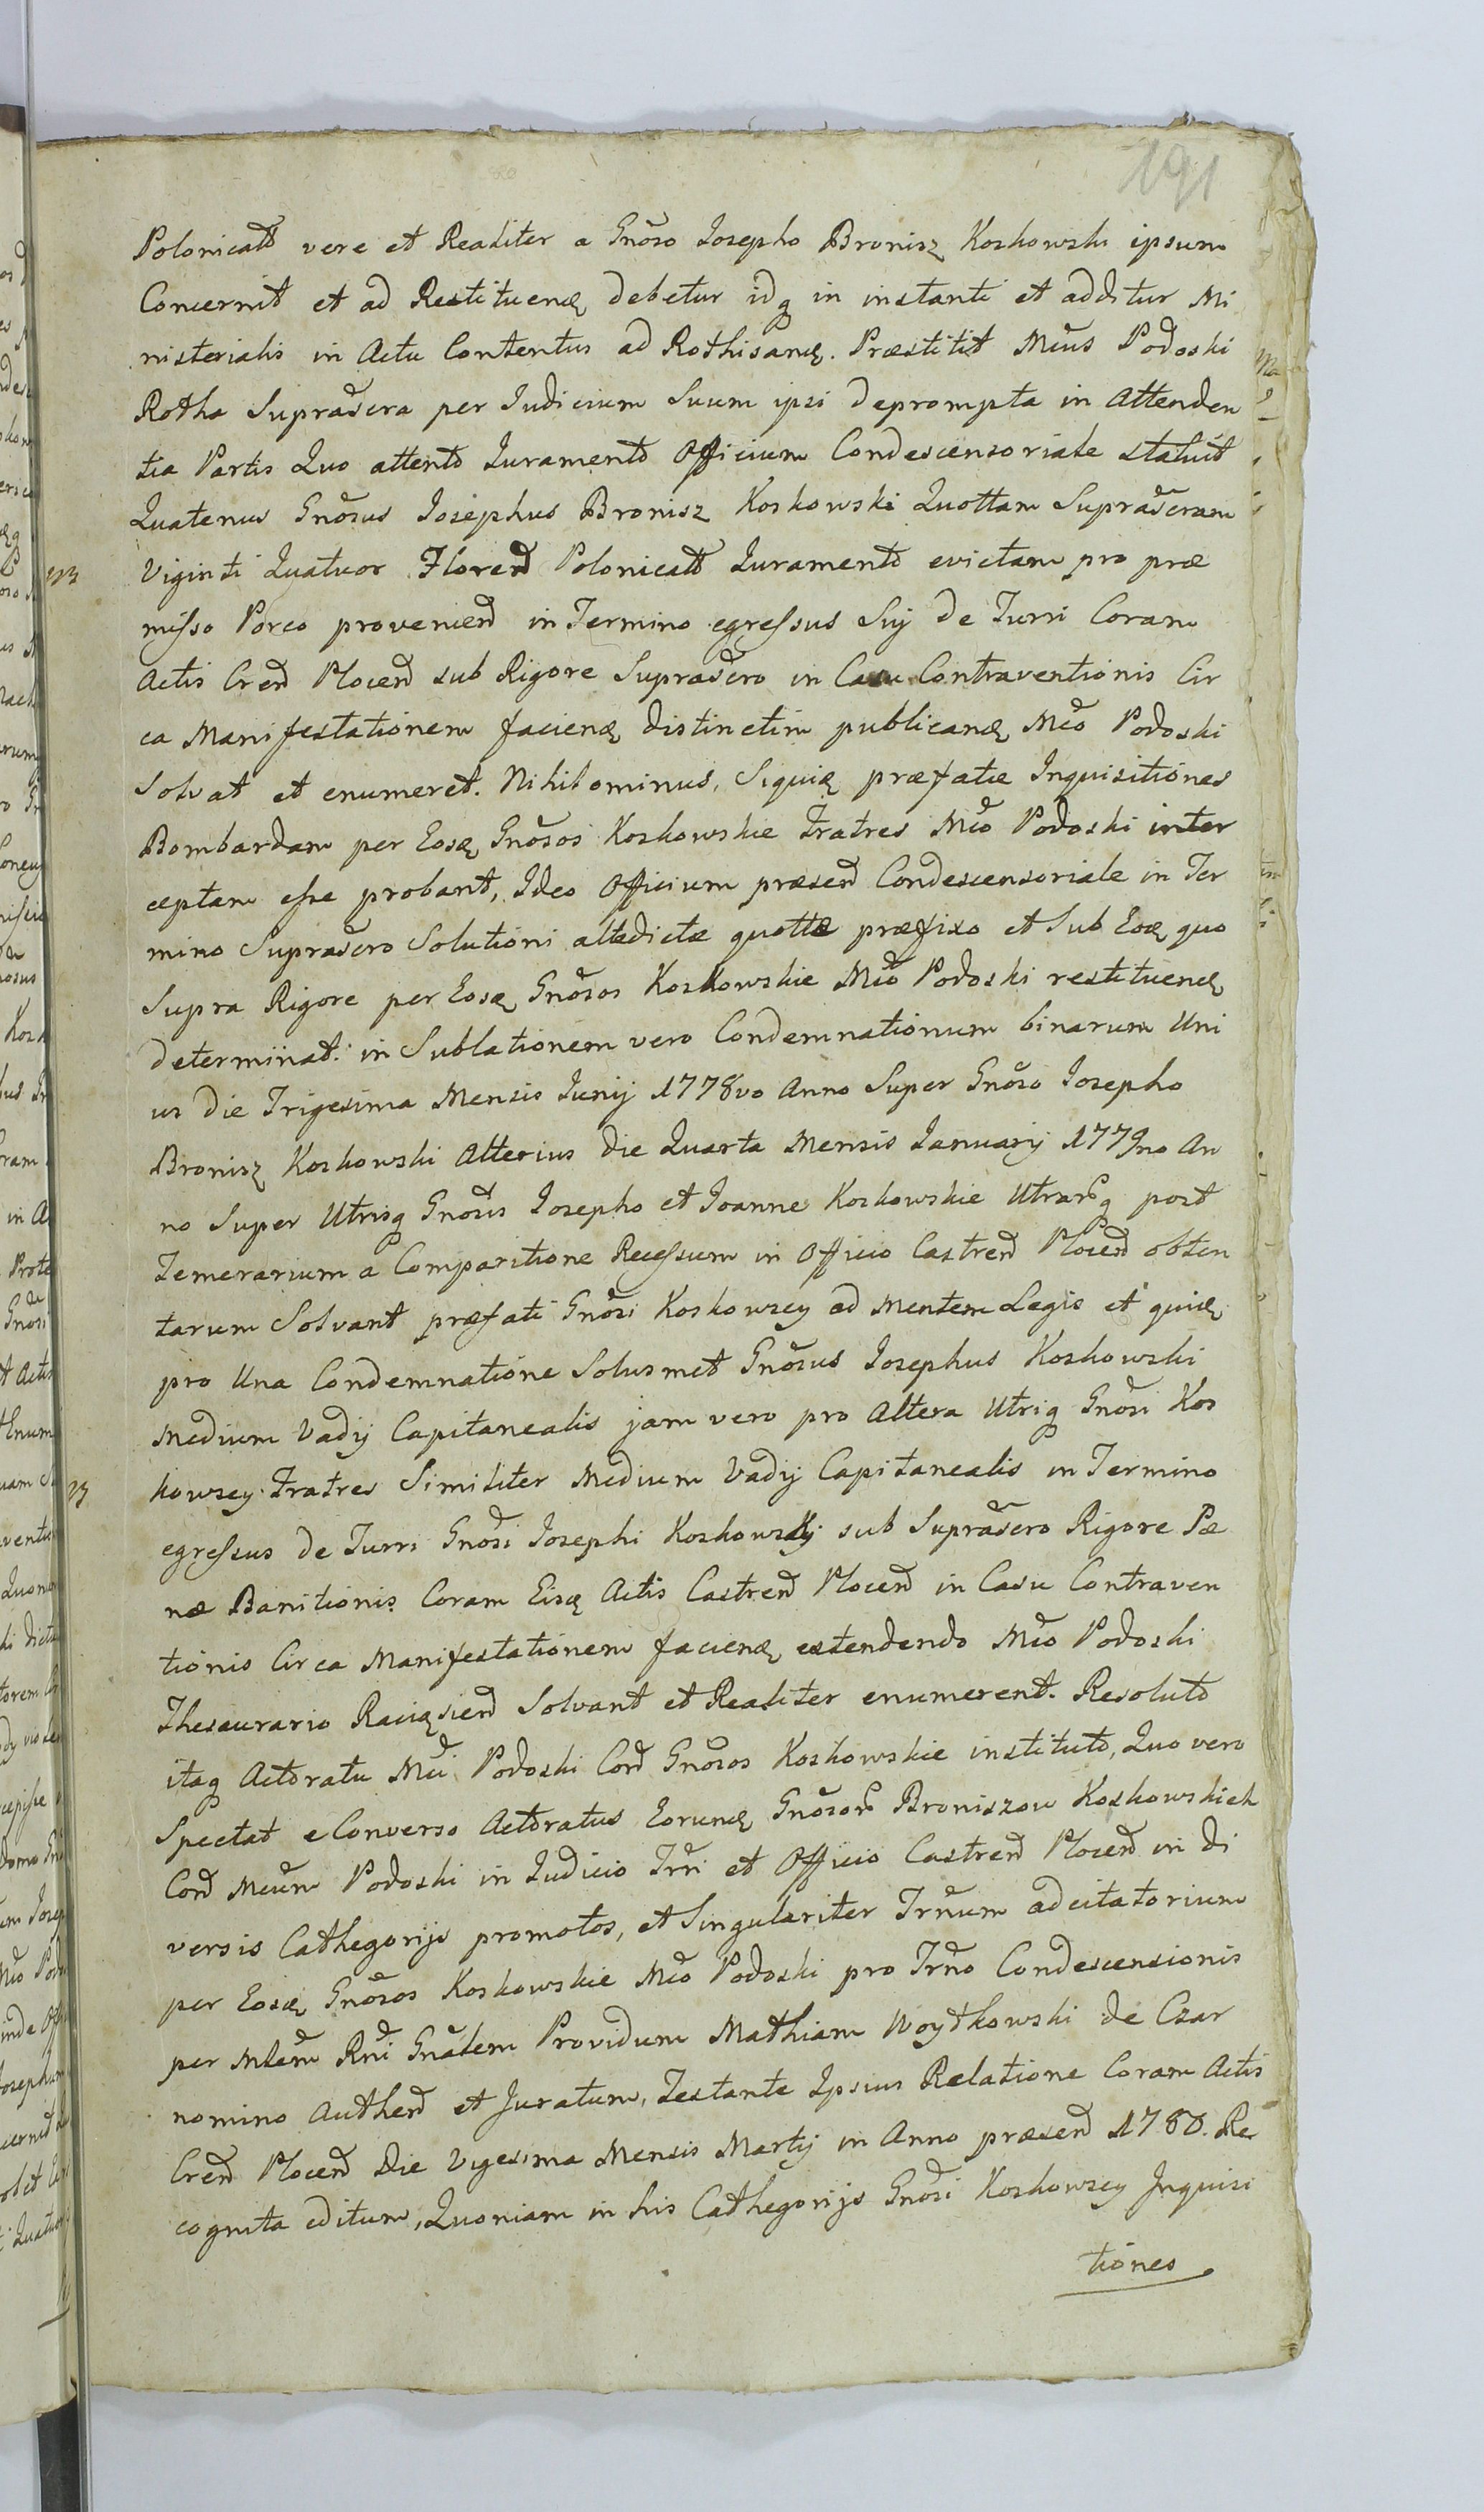 191
Polonicatt vere et Realiter a Gnoso Josepho Bronisz Koskowski ipsum
Concernit et ad Restituend debetur idq in instanti et additur Mi
nisterialis in Actu Contentus ad Rothisand. Præstitit Mcus Podoski
Rotha Supradscra per Judicium Suum ipsi deprompta in Attenden
tia Partis Quo attento Juramento Officium Condescensoriale statuit
Quatenus Gnosus Josephus Bronisz Koskowski Quottam Supradscram
Viginti Quatuor Floren Polonicatt Juramento evictam pro præ
misso Porco provenien in Termino egressus Sui de Turri Coram
Actis Cren Plocen sub Rigore Supradscro in Casu Contraventionis Cir
ca Manifestationem faciend distinctim publicand Mco Podoski
Solvat et enumeret. Nihilominus, Siquid præfatæ Inquisitiones
Bombardam per Eosd Gnosos Koskowskie Fratres Mco Podoski inter
ceptam esse probant, Ideo Officium præsen Condescensoriale in Ter
mino Supradscro Solutioni altedictæ quottæ præfixo et Sub Eod quo
Supra Rigore per Eosd Gnosos Koskowskie Mco Podoski restituend
determinat. in Sublationem vero Condemnationum binarum Uni
us die Trigesima Mensis Junij 1778vo Anno Super Gnoso Josepho
Bronisz Koskowski Alterius die Quarta Mensis Januarij 1779no An
no Super Utrisq Gnosis Josepho et Joanne Koskowskie Utrarq post
Temerarium a Comparitione Recessum in Officio Castren Plocen obten
tarum Solvant præfati Gnosi Koskowscy ad Mentem Legis et quid
pro Una Condemnatione Solusmet Gnosus Josephus Koskowski
Medium Vadij Capitanealis jam vero pro Altera Utriq Gnosi Kos
kowscy Fratres Similiter Medium Vadij Capitanealis in Termino
egressus de Turri Gnosi Josephi Koskowskij sub Supradscro Rigore Pæ
næ Banitionis Coram Eisd Actis Castren Plocen in Casu Contraven
tionis Circa Manifestationem faciend extendendo Mco Podoski
Thesaurario Raciąsien Solvant et Realiter enumerent. Resoluto
itaq Actoratu Mci Podoski Con Gnosos Koskowskie instituto, Quo vero
Spectat e Converso Actoratus Eorund Gnosor Broniszow Koskowskich
Con Mcum Podoski in Judicio Trri et Officio Castren Plocen in di
versis Cathegorijs promotos, et Singulariter Trnum adcitatorium
per Eosd Gnosos Koskowskie Mco Podoski pro Trno Condescensionis
per Mlem Rni Gnalem Providum Mathiam Woytkowski de Czar
nomino Authen et Juratum, Testante Ipsius Relatione Coram Actis
Cren Plocen die Vigesima Mensis Martij in Anno præsen 1780. Re
cognita editum, Quoniam in his Cathegorijs Gnosi Koskowscy Inquisi
tiones